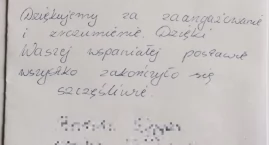 Dziękujemy za zaangażowanie
i zrozumienie. Dzięki
Waszej wspaniałej postawie
wszystko zakończyło się
szczęśliwie.